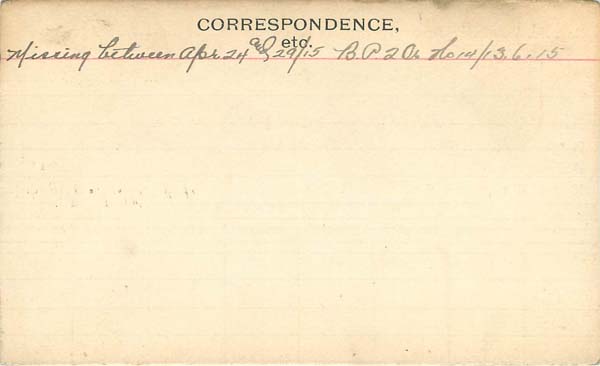 CORRESPONDENCE,
etc.
Missing between Apr. 24 and 29/15 B. P 2 Or No 14/13. 6. 15